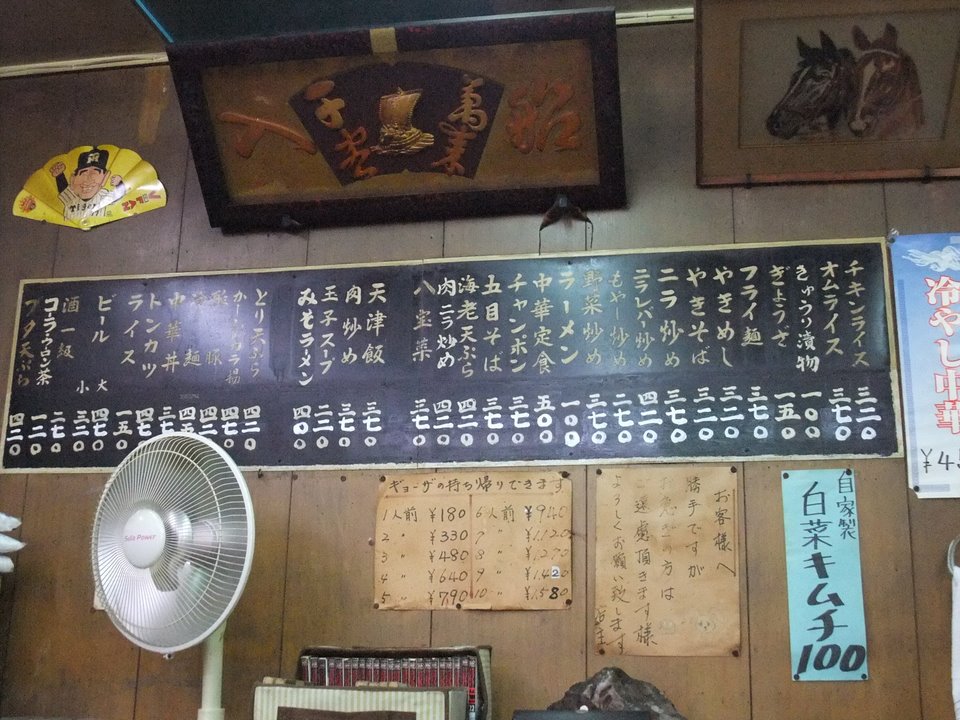 入船
千客萬来
Tigers
チキンライス 三二〇
オムライス 三七〇
きゅうり漬物 一〇〇
ぎょうざ 一五〇
フライ麺 三七〇
やきめし 三二〇
やきそば 三二〇
ニラ炒め 三七〇
ニラレバー炒め 四二〇
もやし炒め 二七〇
野菜炒め 三七〇
ラーメン
中華定食 五〇〇
チャンポン 三七〇
五目そば 三七〇
海老天ぷら 四二〇
肉ニラ炒め 四二〇
八宝菜 三七〇
天津飯 三七〇
肉炒め 三七〇
玉子スープ 二二〇
みそラーメン 四〇〇
とり天ぷら 四二〇
酢豚
麺
中華丼
トンカツ
ライス 一五〇
ビール 大 四七〇
小 三七〇
酒一級
コーラウーロン茶
ブタ天ぷら 四二〇
冷やし中華
自家製
白菜キムチ
100
ギョーザの持ち帰りできます
1人前 ¥180 6人前 ¥940
2 〃 ¥330 7 〃 ¥1,120
3 〃 ¥480 8 〃 ¥1,270
4 〃 ¥640 9 〃 ¥1,420
5 〃 ¥790 10 〃 ¥1,580
お客様へ
勝手ですが
お急ぎの方は
ご遠慮頂きます様
よろしくお願い致します
店主
Solo Power